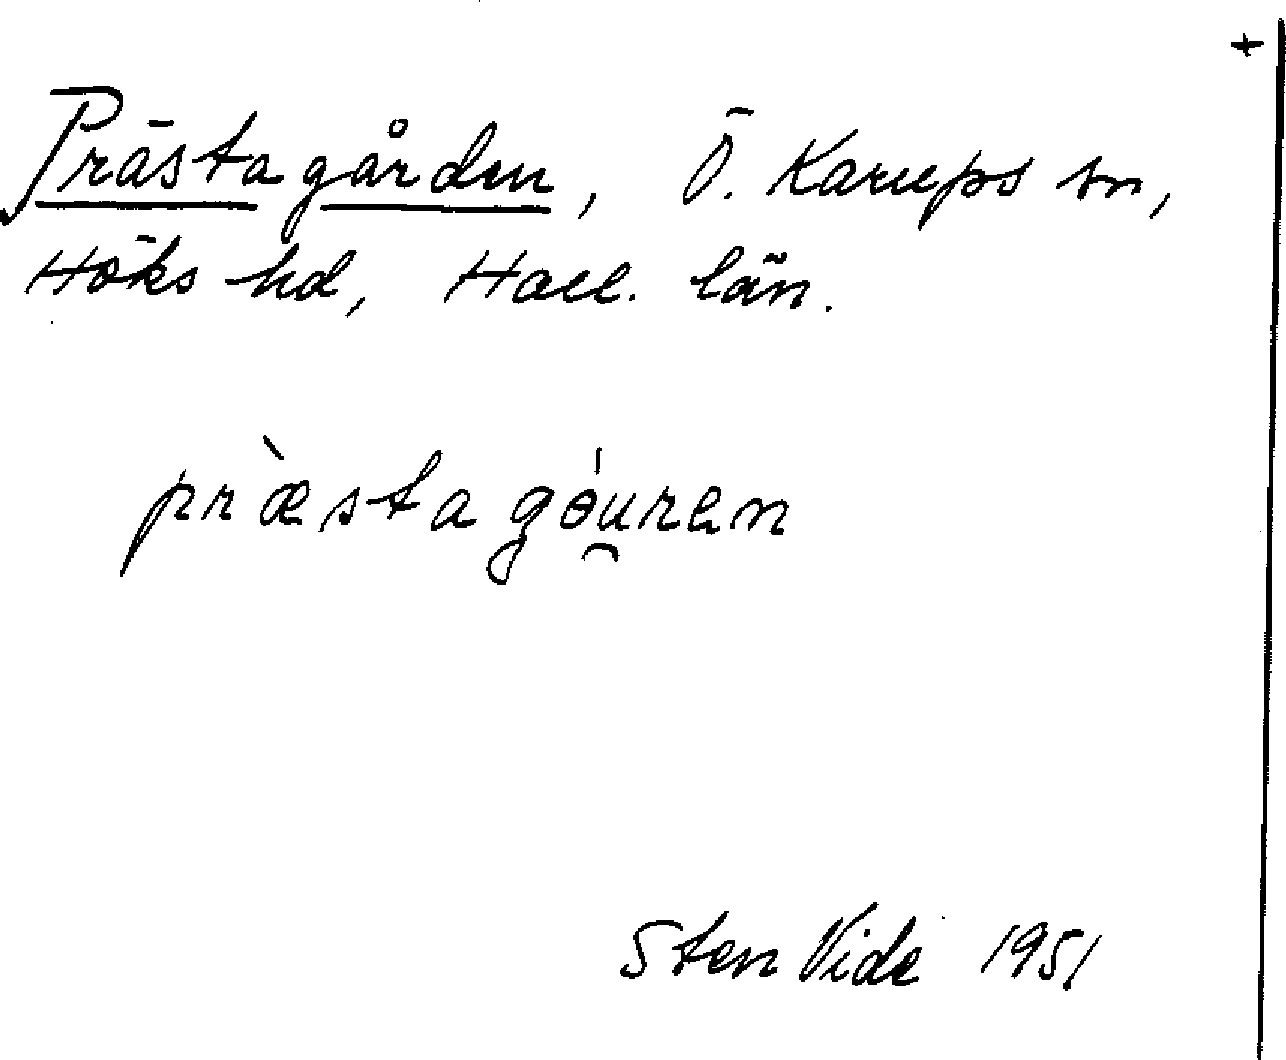 +
Prästagården, Ö. Karups sn,
Höks hd, Hall. län.
præ̀stagɵ́u̯ren
Sten Vide 1951